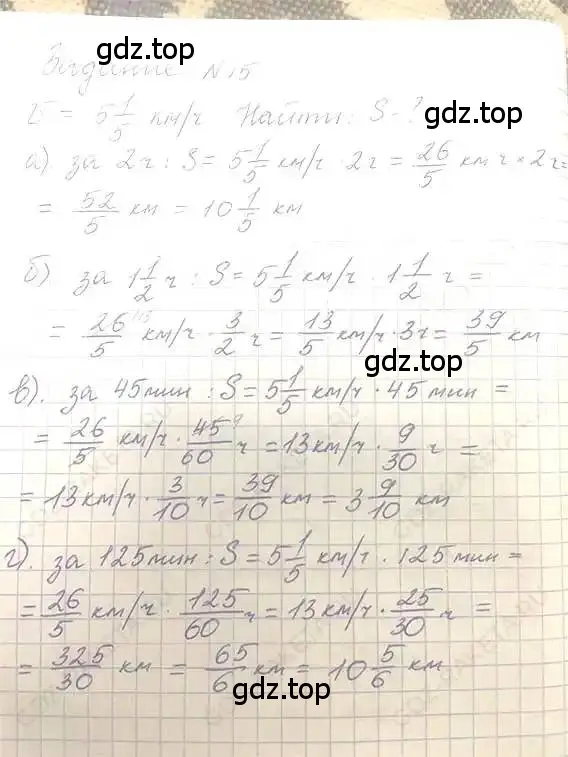 gdz.top
Задание N15
V = 5 1/5 км/ч Найти: S-?
gdz.top
а) за 2ч : S = 5 1/5 км/ч · 2ч = 26/5 км ч × 2 ч =
= 52/5 км = 10 1/5 км
б) за 1 1/2 ч : S = 5 1/5 км/ч · 1 1/2 ч =
= 26/5 км/ч · 3/2 ч = 13/5 км/ч · 3ч = 39/5 км
gdz.top
в). за 45мин : S = 5 1/5 км/ч · 45 мин =
= 26/5 км/ч · 45/60 ч = 13 км/ч · 9/30 ч =
= 13 км/ч · 3/10 ч = 39/10 км = 3 9/10 км
г). за 125мин : S = 5 1/5 км/ч · 125 мин =
= 26/5 км/ч · 125/60 ч = 13 км/ч · 25/30 ч =
= 325/30 км = 65/6 км = 10 5/6 км
gdz.top